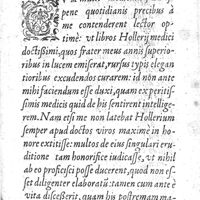 pene quotidianis precibus à
me contenderent lector op-
time: vt libros Hollerij medici
doctissimi, quos frater meus annis superio-
ribus in lucem emiserat, rursus typis elegan
tioribus excudendos curarem: id non ante
mihi faciendum esse duxi, quam ex peritis-
simis medicis quid de his sentirent intellige-
rem. Nam etsi me non latebat Hollerium
semper apud doctos viros maximo in ho-
nore extitisse: multos de eius singulari eru-
ditione tam honorifice iudicasse, vt nihil
ab eo proficisci posse ducerent, quod non es-
set diligenter elaboratū: tamen cum ante è
vita discesserit, quam his postremam ma-